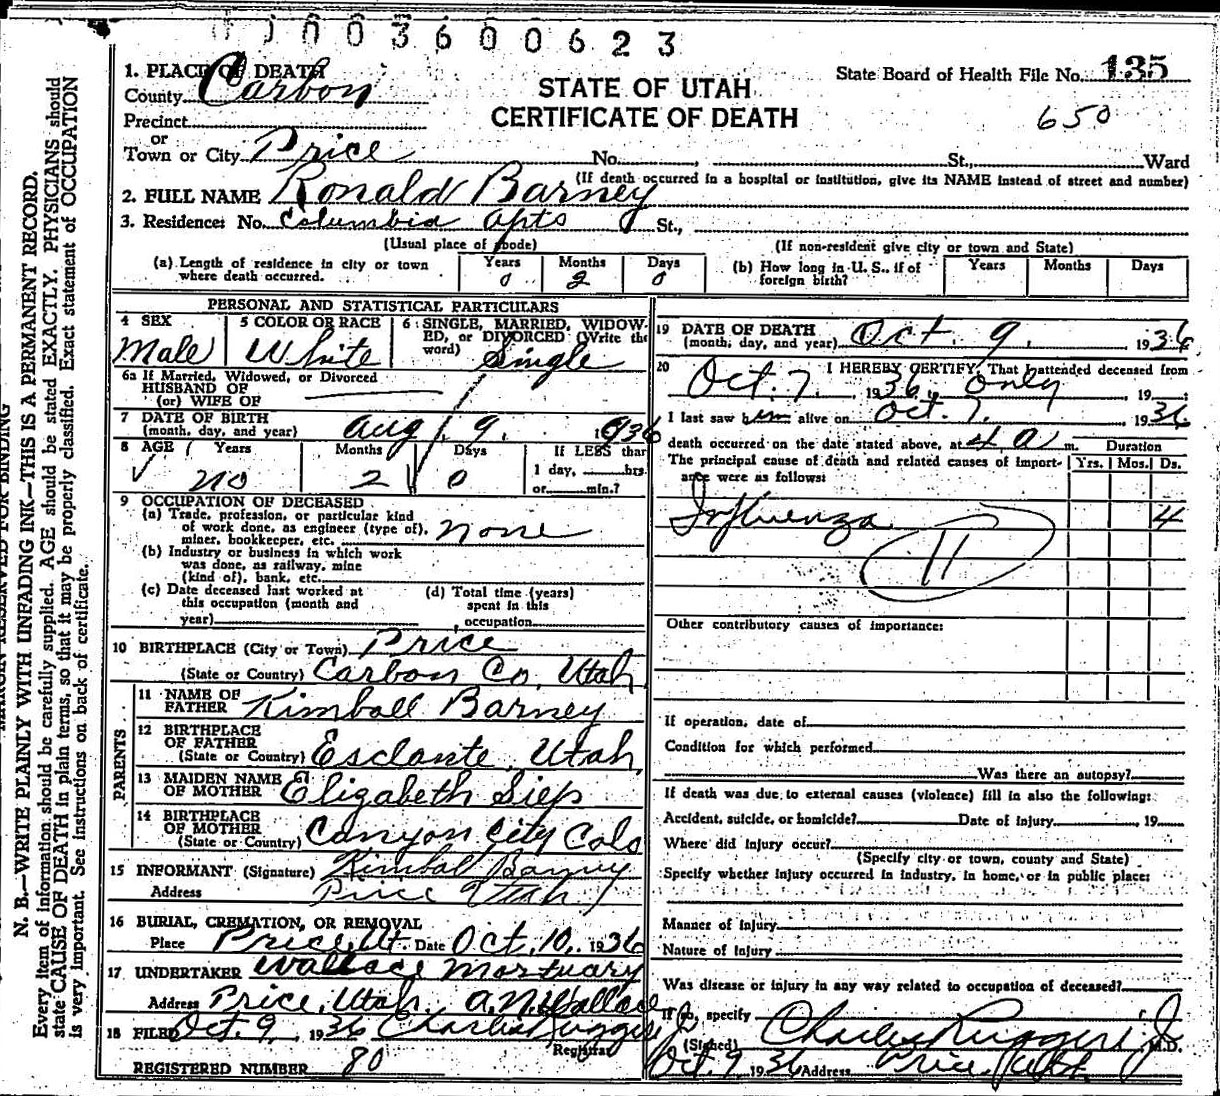 0 1 0 0 3 6 0 0 6 2 3
1. PLACE OF DEATH
County Carbon
STATE OF UTAH
CERTIFICATE OF DEATH
State Board of Health File No. 135
650
Precinct
or
Town or City Price No. , St., Ward
(If death occurred in a hospital or institution, give its NAME instead of street and number)
2. FULL NAME Ronald Barney
3. Residence: No. Columbia Apts St.,
(Usual place of abode) (If non-resident give city or town and State)
(a) Length of residence in city or town where death occurred. Years 0 Months 2 Days 0
(b) How long in U. S., if of foreign birth? Years Months Days
PERSONAL AND STATISTICAL PARTICULARS
4 SEX Male
5 COLOR OR RACE White
6 SINGLE, MARRIED, WIDOW-
ED, or DIVORCED (Write the
word) Single
6a If Married, Widowed, or Divorced
HUSBAND OF
(or) WIFE OF
7 DATE OF BIRTH
(month, day, and year) Aug. 9. 1936
8 AGE Years no Months 2 Days 0 If LESS than
1 day, hrs.
or min.?
9 OCCUPATION OF DECEASED
(a) Trade, profession, or particular kind
of work done, as engineer (type of),
miner, bookkeeper, etc. none
(b) Industry or business in which work
was done, as railway, mine
(kind of), bank, etc.
(c) Date deceased last worked at
this occupation (month and
year)
(d) Total time (years)
spent in this
occupation
10 BIRTHPLACE (City or Town) Price
(State or Country) Carbon Co, Utah
PARENTS
11 NAME OF
FATHER Kimball Barney
12 BIRTHPLACE
OF FATHER
(State or Country) Esclante, Utah
13 MAIDEN NAME
OF MOTHER Elizabeth Sieps
14 BIRTHPLACE
OF MOTHER
(State or Country) Canyon City Colo
15 INFORMANT (Signature) Kimbal Barney
Address Price Utah
16 BURIAL, CREMATION, OR REMOVAL
Place Price, Ut. Date Oct. 10, 1936
17 UNDERTAKER Wallace Mortuary
Address Price, Utah. A. N. Wallace
18 FILED Oct. 9, 1936 Charles Ruggeri Jr
Registrar
REGISTERED NUMBER 80
19 DATE OF DEATH
(month, day, and year) Oct. 9. 1936
20 I HEREBY CERTIFY, That I attended deceased from
Oct. 7. 1936, only 19
I last saw him alive on Oct. 7. , 1936
death occurred on the date stated above, at 4 a m. Duration
The principal cause of death and related causes of import-
ance were as follows: Yrs. Mos. Ds.
Influenza 4
11
Other contributory causes of importance:
If operation, date of
Condition for which performed
Was there an autopsy?
If death was due to external causes (violence) fill in also the following:
Accident, suicide, or homicide? Date of injury , 19
Where did injury occur?
(Specify city or town, county and State)
Specify whether injury occurred in industry, in home, or in public place:
Manner of injury
Nature of injury
Was disease or injury in any way related to occupation of deceased?
If so, specify
(Signed) Charles Ruggeri Jr M.D.
Oct. 9 1936 Address Price, Utah.
MARGIN RESERVED FOR BINDING
N. B.—WRITE PLAINLY WITH UNFADING INK—THIS IS A PERMANENT RECORD.
Every item of information should be carefully supplied. AGE should be stated EXACTLY. PHYSICIANS should
state CAUSE OF DEATH in plain terms, so that it may be properly classified. Exact statement of OCCUPATION
is very important. See instructions on back of certificate.